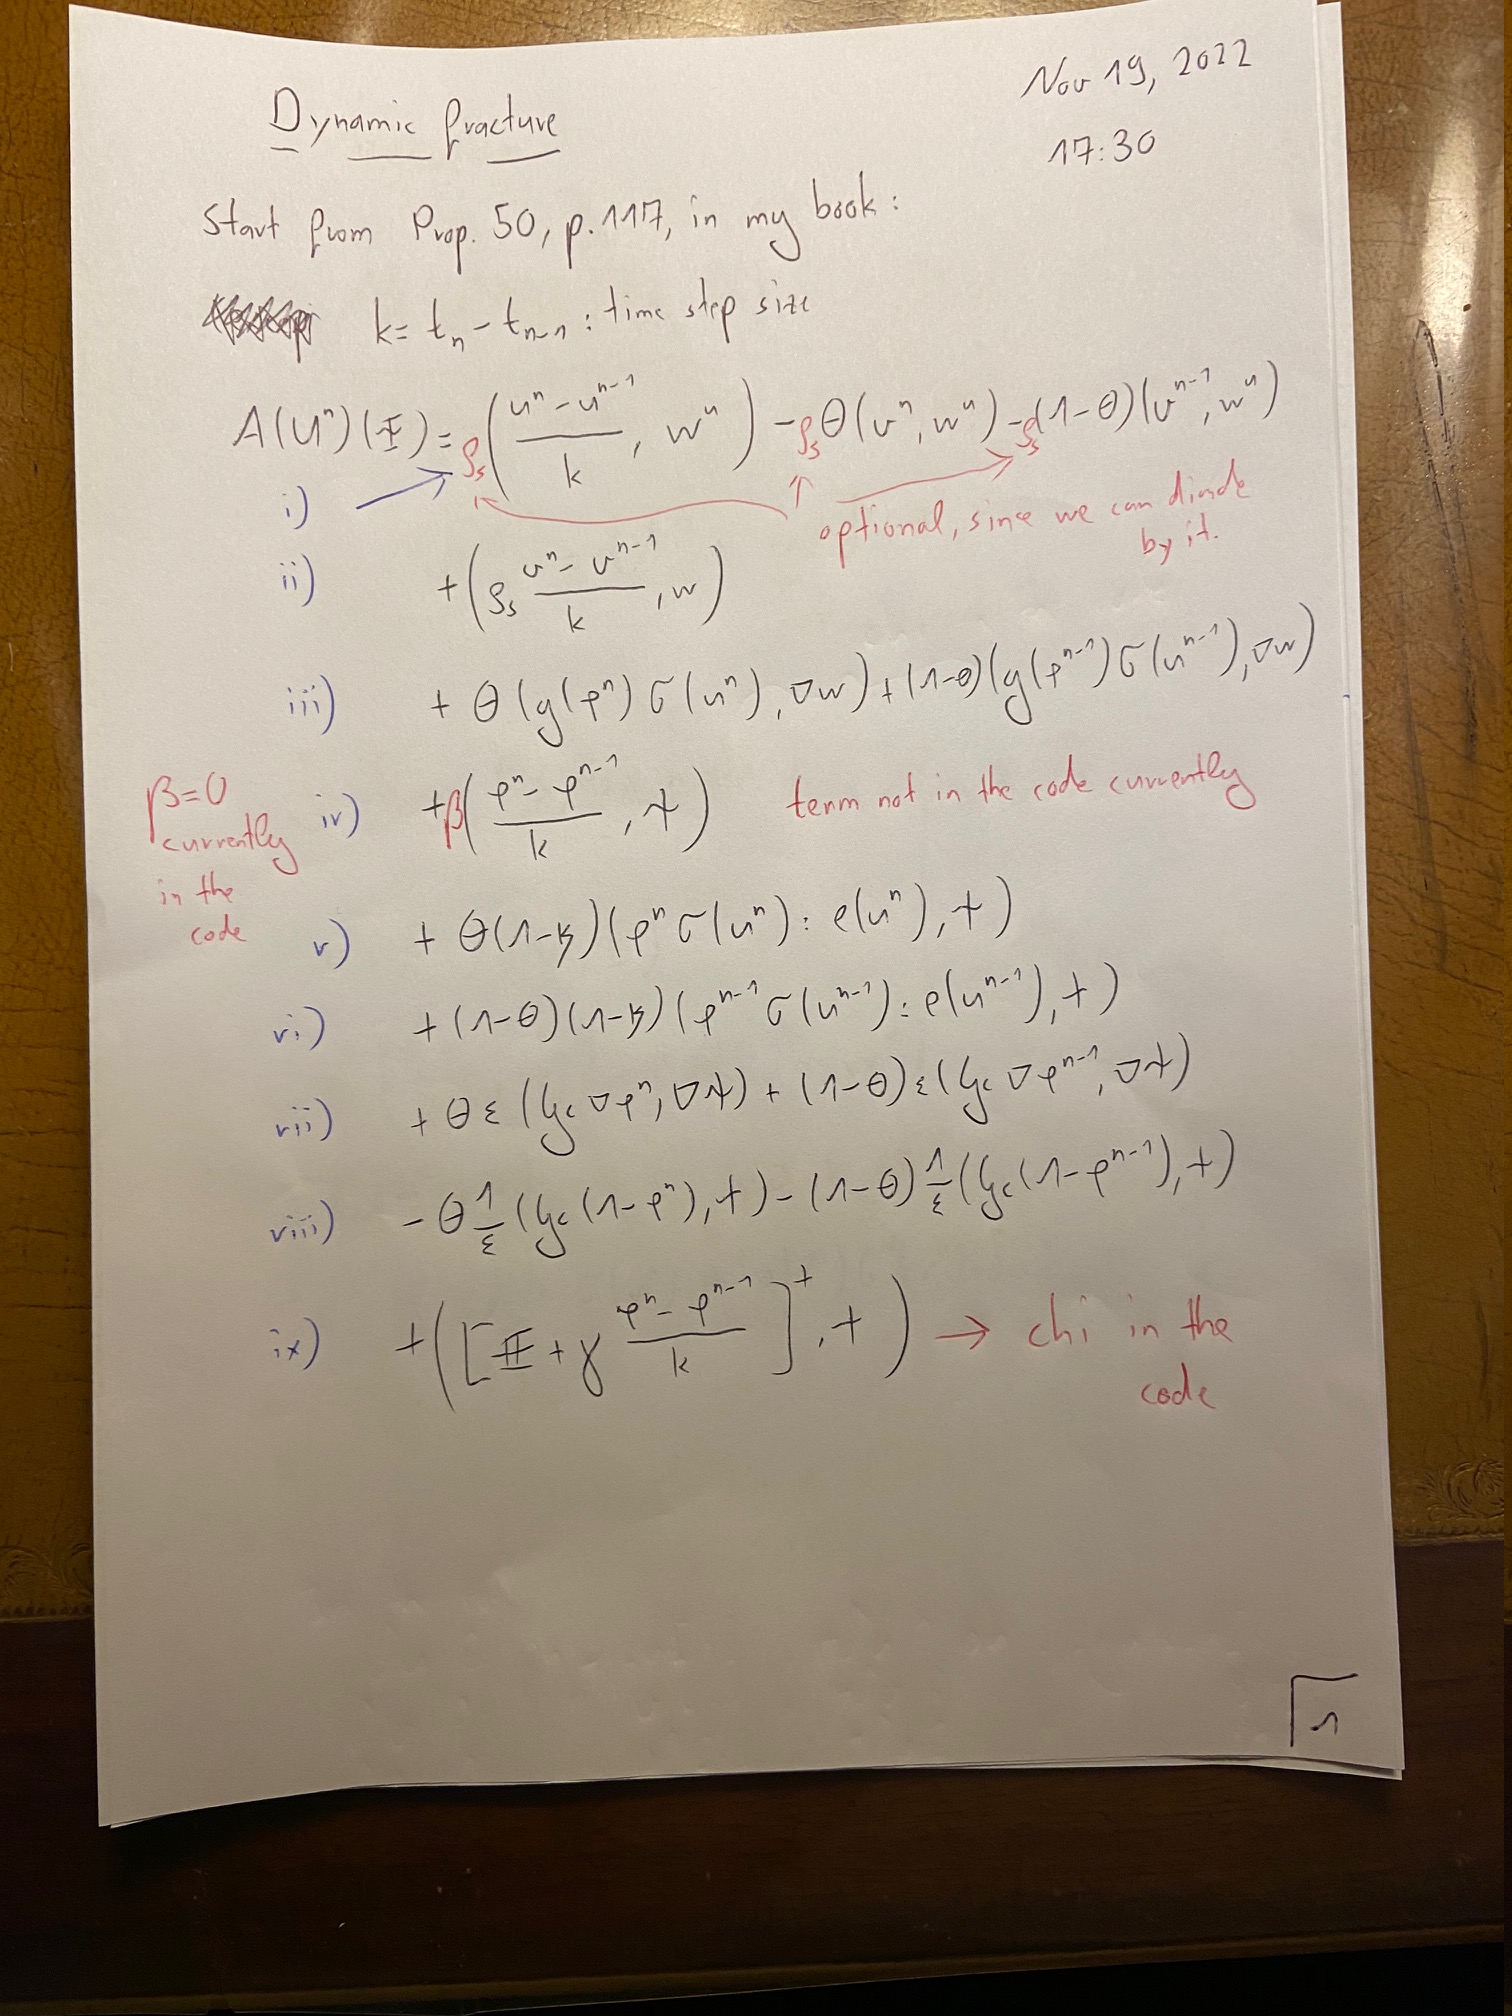 Nov 19, 2022
Dynamic fracture
17:30
Start from Prop. 50, p. 117, in my book:
k = tₙ - tₙ₋₁ : time step size
A(Uⁿ)(Ψ) = ρₛ((uⁿ - uⁿ⁻¹)/k, wᵘ) - ρₛ θ(vⁿ, wᵘ) - ρₛ(1-θ)(vⁿ⁻¹, wᵘ)
i)
optional, since we can divide
by it.
ii) + (ρₛ (vⁿ - vⁿ⁻¹)/k, w)
iii) + θ(g(φⁿ) σ(uⁿ), ∇w) + (1-θ)(g(φⁿ⁻¹) σ(uⁿ⁻¹), ∇w)
β=0
currently
in the
code
iv) + β((φⁿ - φⁿ⁻¹)/k, ψ) term not in the code currently
v) + θ(1-κ)(φⁿ σ(uⁿ) : e(uⁿ), ψ)
vi) + (1-θ)(1-κ)(φⁿ⁻¹ σ(uⁿ⁻¹) : e(uⁿ⁻¹), ψ)
vii) + θ ε (G_c ∇φⁿ, ∇ψ) + (1-θ) ε (G_c ∇φⁿ⁻¹, ∇ψ)
viii) - θ 1/ε (G_c (1-φⁿ), ψ) - (1-θ) 1/ε (G_c (1-φⁿ⁻¹), ψ)
ix) + ([Ξ + γ (φⁿ - φⁿ⁻¹)/k]⁺, ψ) → chi in the
code
1